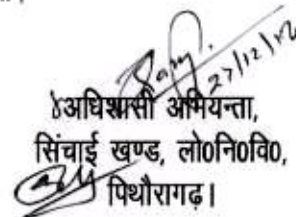 27/12/12
अधिशासी अभियन्ता,
सिंचाई खण्ड, लो0नि0वि0,
पिथौरागढ़।